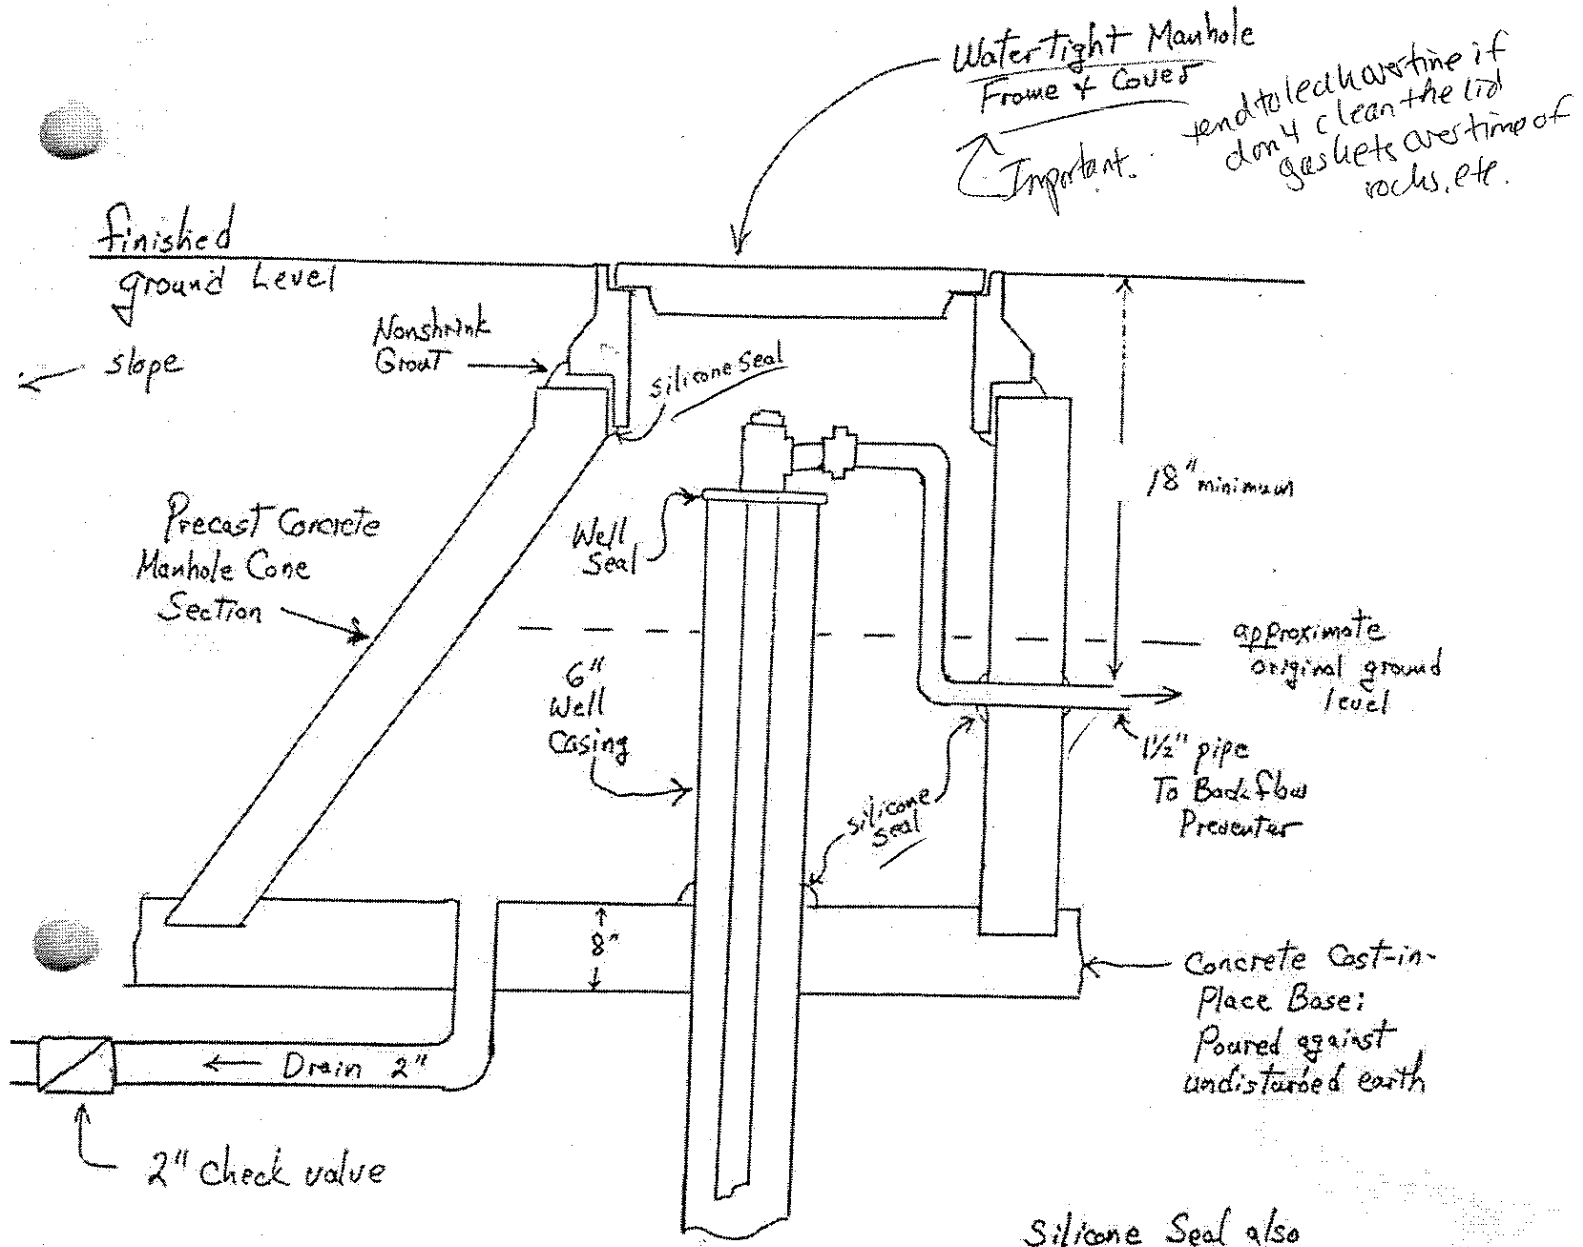 Water Tight Manhole
Frame & Cover
Important.
tend to leak overtime if
don't clean the lid
gaskets overtime of
rocks, etc.
finished
ground Level
slope
Nonshrink
Grout
silicone seal
18" minimum
Precast Concrete
Manhole Cone
Section
Well
Seal
approximate
original ground
level
6"
Well
Casing
1½" pipe
To Backflow
Preventer
silicone
seal
8"
Concrete Cast-in-
Place Base:
Poured against
undisturbed earth
Drain 2"
2" check valve
Silicone Seal also